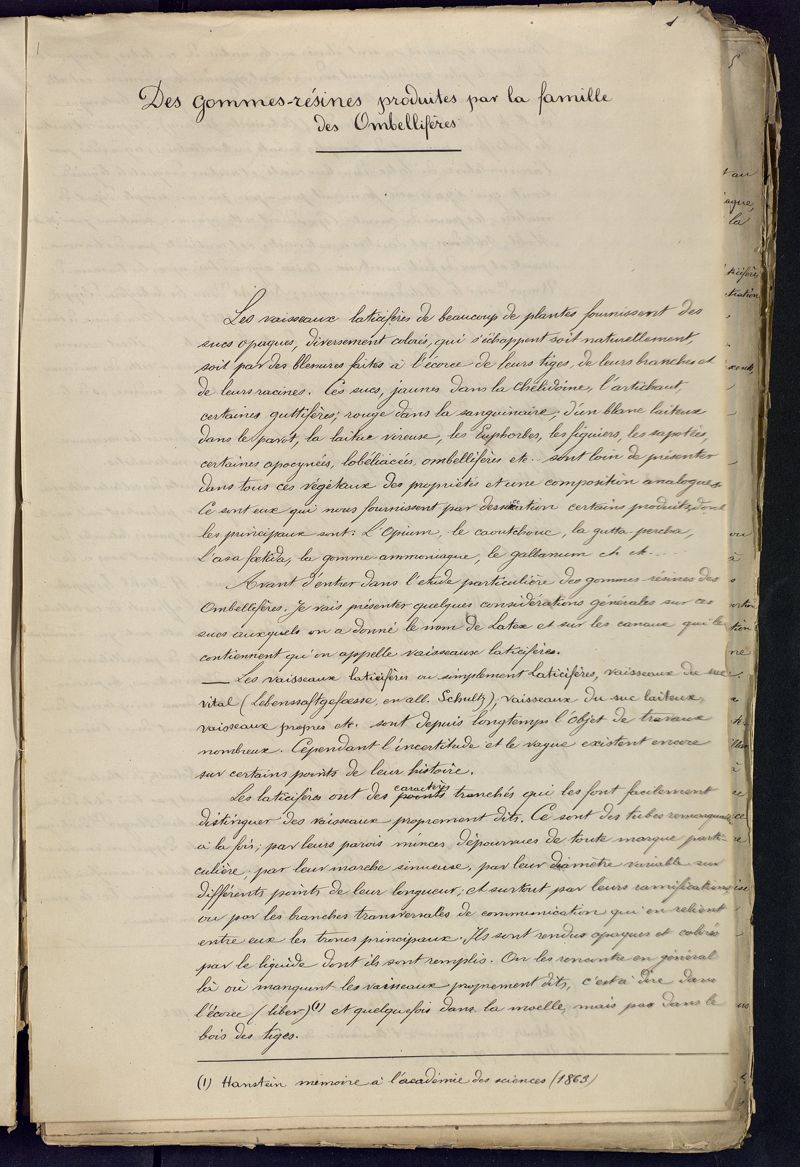 1
Des Gommes-résines produites par la famille
des Ombellifères
Les vaisseaux laticifères de beaucoup de plantes fournissent des
sucs opaques, diversement colorés, qui s'échappent soit naturellement,
soit par des blessures faites à l'écorce de leurs tiges, de leurs branches et
de leurs racines. Ces sucs, jaunes dans la chélidoine, l'artichaut,
certaines guttifères; rouge dans la sanguinaire; d'un blanc laiteux
dans le pavot, la laitue vireuse, les Euphorbes, les figuiers, les sapotées,
certaines apocynées, lobéliacées, ombellifères etc.. sont loin de présenter
dans tous ces végétaux des propriétés et une composition analogues
Ce sont eux qui nous fournissent par dessiccation certains produits, dont
les principaux sont: L'Opium, le caoutchouc, la gutta percha,
L'asa fœtida, la gomme ammoniaque, le galbanum et et....
Avant d'entrer dans l'etude particulière des gommes résines des
Ombellifères. Je vais présenter quelques considérations générales sur ces
sucs auxquels on a donné le nom de Latex et sur les canaux qui le
contiennent qu'on appelle vaisseaux laticifères.
— Les vaisseaux laticifères ou simplement Laticifères, vaisseaux du suc
vital (Lebenssaftgefœsse, en all. Schultz), vaisseaux du suc laiteux,
vaisseaux propres etc. sont depuis longtemps l'objet de travaux
nombreux. Cependant l'incertitude et le vague existent encore
sur certains points de leur histoire.
caractères
Les laticifères ont des points tranchés qui les font facilement
distinguer des vaisseaux proprement dits. Ce sont des tubes remarquables
à la fois; par leurs parois minces dépourvues de toute marque parti-
culière, par leur marche sinueuse, par leur diamètre variable sur
différents points de leur longueur, et surtout par leurs ramifications
ou par les branches transversales de communication qui en relient
entre eux les troncs principaux. Ils sont rendus opaques et colorés
par le liquide dont ils sont remplis. On les rencontre en général
là où manquent les vaisseaux proprement dits, c'est à dire dans
l'écorce (liber)(1) et quelquefois dans la moelle, mais pas dans le
bois des tiges.
(1) Hanstein mémoire à l'académie des sciences (1863)